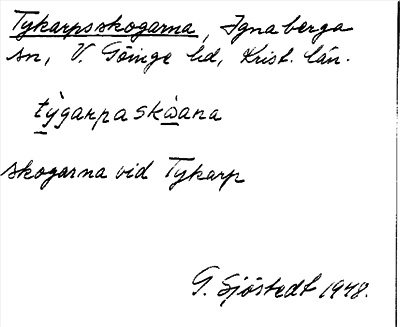 Tykarpsskogarna, Ignaberga
sn, V. Göinge hd, Krist. län.
tỳgarpaskẁana
skogarna vid Tykarp
G. Sjöstedt 1948.